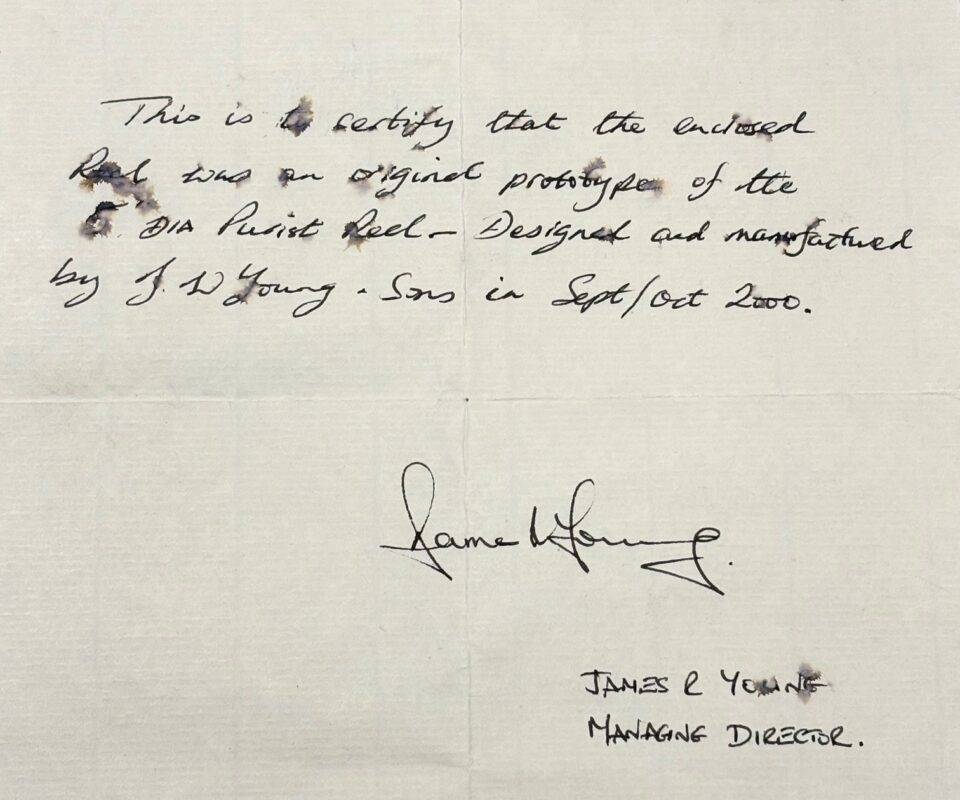 This is to certify that the enclosed
Reel was an original prototype of the
5" DIA Purist Reel - Designed and manufactured
by J. W Young - Sons in Sept/Oct 2000.
James R Young.
JAMES R YOUNG
MANAGING DIRECTOR.